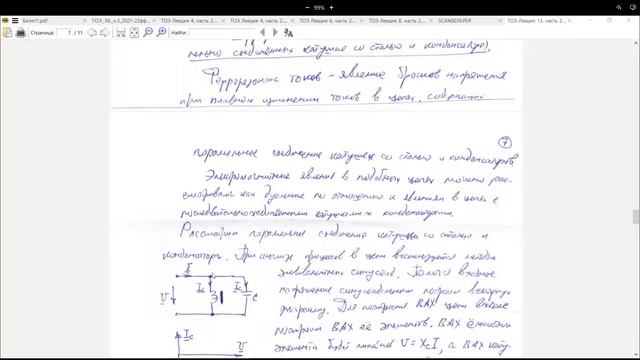 99%
Билет1.pdf
ТОЭ Лекция 4, часть 2...
ТОЭ Лекция 4, часть 2...
ТОЭ Лекция 6, часть 2...
ТОЭ Лекция 8, часть 2...
SCAN0039.PDF
ТОЭ Лекция 13, часть 2...
Страница: 7 / 11
соединённых катушке со сталью и конденсатора).
Феррорезонанс токов – явление бросков напряжения
при плавном изменении токов в цепях, содержащих
7
параллельное соединение катушек со сталью и конденсаторов
Электромагнитные явления в подобных цепях можно рас-
сматривать как дуальные по отношению к явлениям в цепях с
последовательно соединёнными катушками и конденсаторами.
Рассмотрим параллельное соединение катушки со сталью и
конденсатора. При анализе процессов в цепи воспользуемся методом
эквивалентных синусоид. Полагая входное
напряжение синусоидальным построим векторную
диаграмму. Для построения ВАХ цепи вначале
построим ВАХ её элементов. ВАХ ёмкостного
элемента будет линейна U = XcI, а ВАХ кату-
I
U
Ic
C
Ic
U